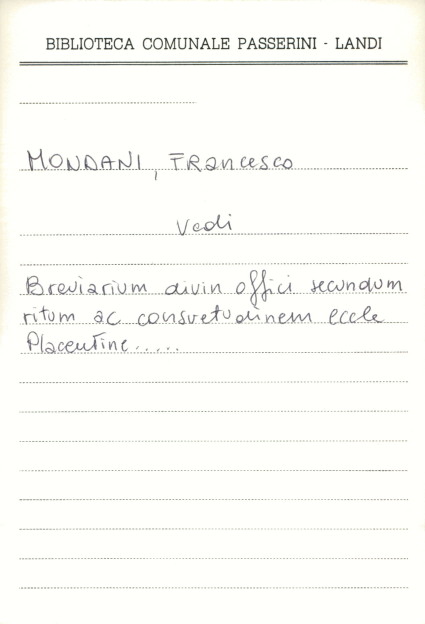 BIBLIOTECA COMUNALE PASSERINI - LANDI
MONDANI, Francesco
Vedi
Breviarium divin offici secundum
ritum ac consvetudinem eccle
Placentine.....